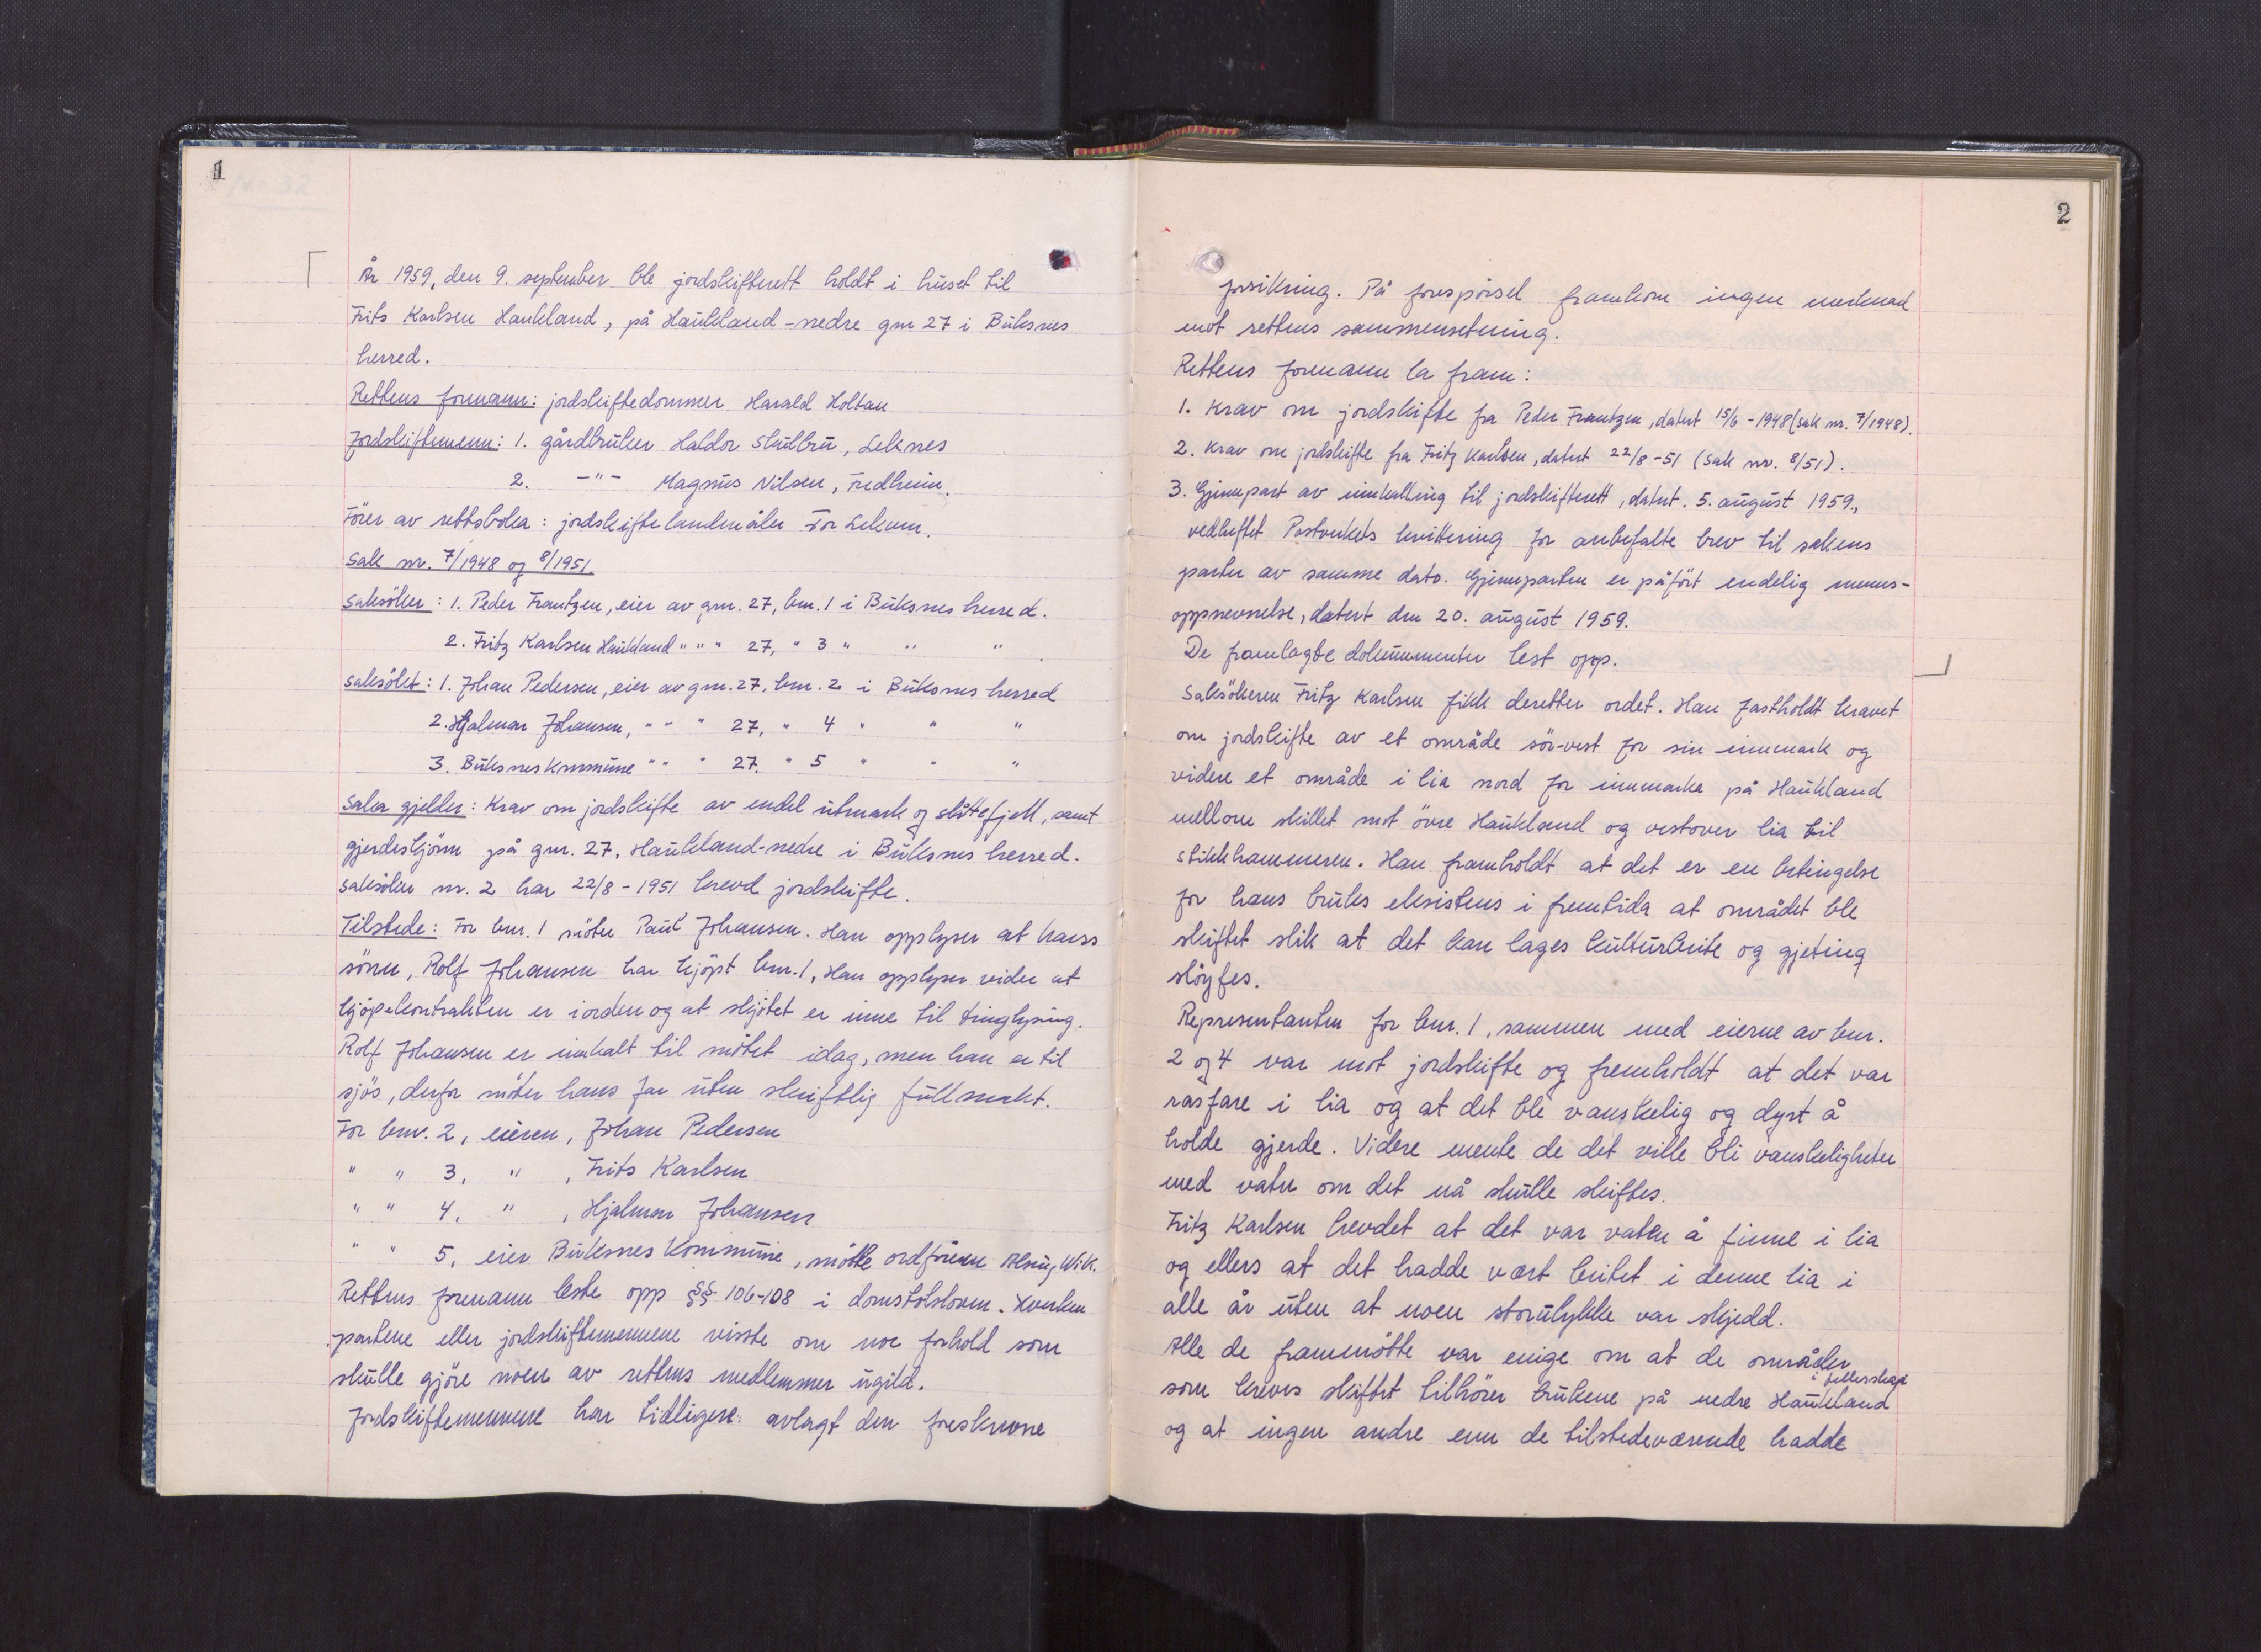 1
Nr. 32
År 1959, den 9. september ble jordskifterett holdt i huset til
Frits Karlsen Haukland, på Haukland-nedre gnr 27 i Buksnes
herred.
Rettens formann: jordskiftedommer Harald Holtan
Jordskiftemenn: 1. gårdbruker Haldor Skulbru, Leknes
2. -"- Magnus Nilsen, Fredheim.
Förer av rettsboka: jordskiftelandmåler Tor Lekum.
Sak nr. 7/1948 og 8/1951.
Saksöker: 1. Peder Frantzen, eier av gnr. 27, bnr. 1 i Buksnes herred.
2. Fritz Karlsen Haukland " " " 27, " 3 " " " .
Saksökt: 1. Johan Pedersen, eier av gnr. 27, bnr. 2 i Buksnes herred
2. Hjalmar Johansen, " " " 27, " 4 " " "
3. Buksnes kommune " " " 27. " 5 " " "
Saka gjelder: Krav om jordskifte av endel utmark og slåttefjell, samt
gjerdeskjönn på gnr. 27, Haukland-nedre i Buksnes herred.
Saksöker nr. 2 har 22/8-1951 krevd jordskifte.
Tilstede: For bnr. 1 möter Paul Johansen. Han opplyser at hans
sönn, Rolf Johansen har kjöpt bnr. 1, Han opplyser vider at
kjöpekontrakten er iorden og at skjötet er inne til tinglysing.
Rolf Johansen er innkalt til mötet idag, men han er til
sjös, derfor möter hans far uten skriftlig fullmakt.
For bnr. 2, eieren, Johan Pedersen
" " 3, " , Frits Karlsen
" " 4, " , Hjalmar Johansen
" " 5, eier Buksnes Kommune, mötte ordföreren Wik.
Rettens formann leste opp §§ 106-108 i domstolsloven. Hverken
partene eller jordskiftemennene visste om noe forhold som
skulle gjöre noen av rettens medlemmer ugild.
Jordskiftemennene har tidligere avlagt den foreskrevne
2
forsikring. På forespörsel framkom ingen merknad
mot rettens sammensetning.
Rettens formann la fram:
1. Krav om jordskifte fra Peder Frantzen, datert 15/6-1948 (sak nr. 7/1948).
2. Krav om jordskifte fra Fritz Karlsen, datert 22/8-51 (sak nr. 8/51).
3. Gjennpart av innkalling til jordskifterett, datert. 5. august 1959.,
vedheftet Postverkets kvittering for anbefalte brev til sakens
parter av samme dato. Gjennparten er påfört endelig menns-
oppnevnelse, datert den 20. august 1959.
De framlagte dokumenter lest opp.
Saksökeren Fritz Karlsen fikk deretter ordet. Han fastholdt kravet
om jordskifte av et område sör-vest for sin innmark og
videre et område i lia nord for innmarka på Haukland
mellom skillet mot övre Haukland og vestover lia til
Stikkhammeren. Han framholdt at det er en betingelse
for hans bruks eksistens i fremtida at området ble
skiftet slik at det kan lages kulturbeite og gjeting
slöyfes.
Representanten for bnr. 1, sammen med eierne av bnr.
2 og 4 var mot jordskifte og fremholdt at det var
rasfare i lia og at det ble vanskelig og dyrt å
holde gjerde. Videre mente de det ville bli vanskeligheter
med vatn om det nå skulle skiftes.
Fritz Karlsen hevdet at det var vatn å finne i lia
og ellers at det hadde vært beitet i denne lia i
alle år uten at noen storulykke var skjedd.
Alle de frammötte var enige om at de områder
i fellesskap
som kreves skiftet tilhörer brukene på nedre Haukland
og at ingen andre enn de tilstedeværende hadde